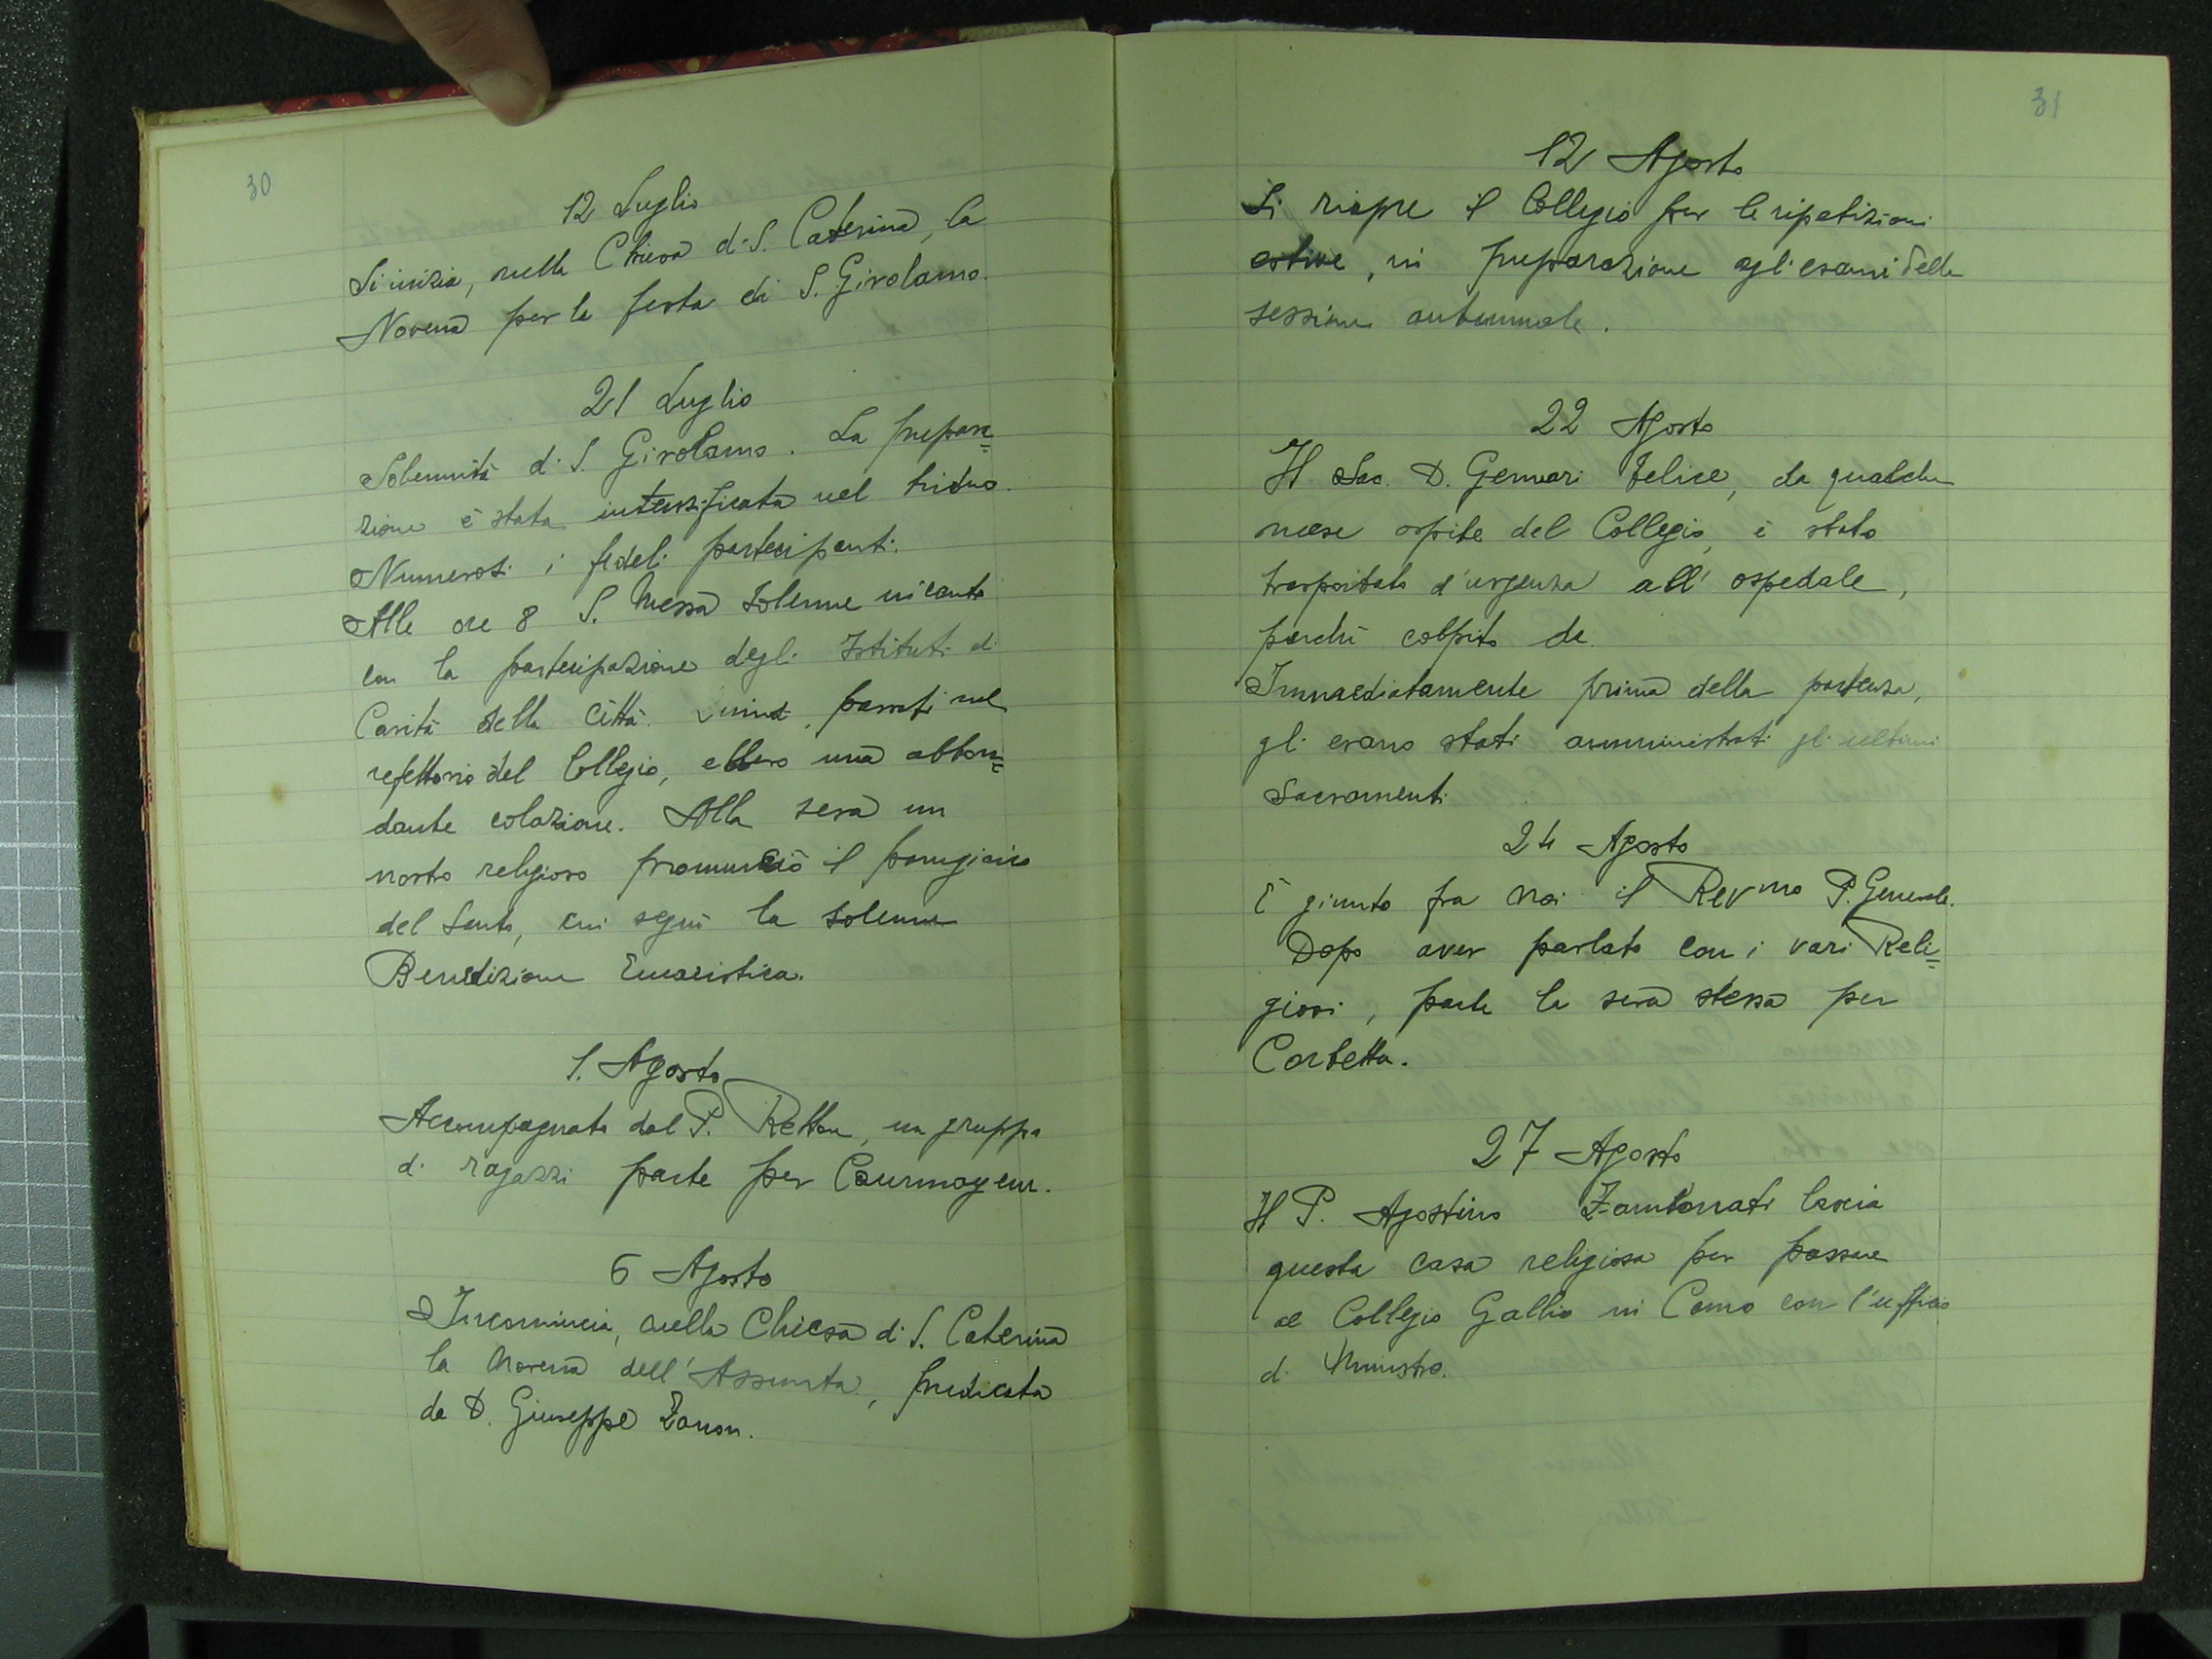 30
12 Luglio
Si inizia, nella Chiesa di S. Caterina, la
Novena per la festa di S. Girolamo.
21 Luglio
Solennità di S. Girolamo. La prepara=
zione è stata intensificata nel triduo.
Numerosi i fedeli partecipanti.
Alle ore 8 S. Messa solenne in canto
con la partecipazione degli Istituti di
Carità della città. Quindi, passati nel
refettorio del Collegio, ebbero una abbon=
dante colazione. Alla sera un
nostro religioso pronunciò il panegirico
del Santo, cui seguì la solenne
Benedizione Eucaristica.
1. Agosto
Accompagnato dal P. , un gruppo
di ragazzi parte per Courmayeur.
6 Agosto
Incomincia, nella Chiesa di S. Caterina
la Novena dell'Assunta, predicata
da D. Giuseppe Zanon.
31
12 Agosto
Si riapre il Collegio per le ripetizioni
estive, in preparazione agli esami della
sessione autunnale.
22 Agosto
Il Sac. D. Gennari Felice, da qualche
mese ospite del Collegio, è stato
trasportato d'urgenza all'ospedale,
perchè colpito da
Immediatamente prima della partenza,
gli erano stati amministrati gli ultimi
Sacramenti
24 Agosto
È giunto fra noi il Rev.mo P. Generale.
Dopo aver parlato con i vari Reli=
giosi, parte la sera stessa per
Corbetta.
27 Agosto
Il P. Agostino lascia
questa casa religiosa per passare
al Collegio Gallio in Como con l'ufficio
di Ministro.